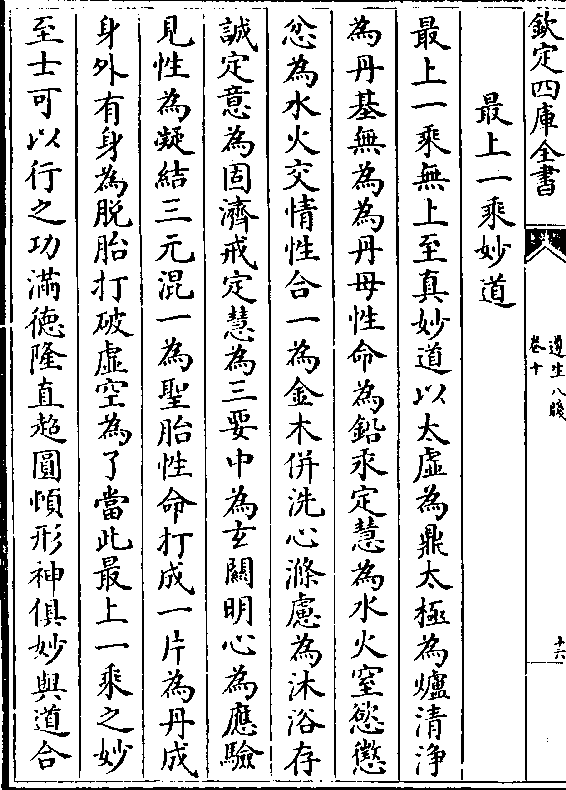 欽定四庫全書
遵生八牋
卷十
十六
最上一乘妙道
最上一乘無上至真妙道以太虛為鼎太極為爐清淨
為丹基無為為丹母性命為鉛汞定慧為水火窒慾懲
忿為水火交情性合一為金木併洗心滌慮為沐浴存
誠定意為固濟戒定慧為三要中為玄關明心為應驗
見性為凝結三元混一為聖胎性命打成一片為丹成
身外有身為脱胎打破虛空為了當此最上一乘之妙
至士可以行之功滿德隆直超圓頓形神俱妙與道合